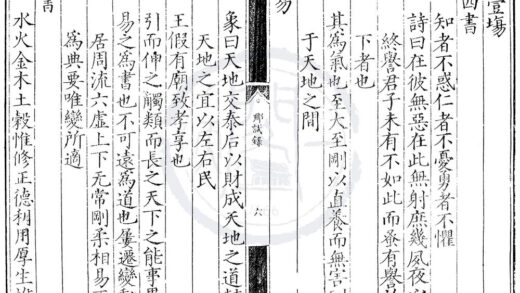 壹場
四書
知者不惑仁者不憂勇者不懼
詩曰在彼無惡在此無射庶幾夙夜以
終譽君子未有不如此而蚤有譽於
下者也
其爲氣也至大至剛以直養而無害
于天地之間
易
鄉試錄 六
象曰天地交泰后以財成天地之道
天地之宜以左右民
王假有廟致孝享也
引而伸之觸類而長之天下之能事畢
易之爲書也不可遠爲道也屢遷變動
居周流六虛上下无常剛柔相易不
爲典要唯變所適
書
水火金木土穀惟修正德利用厚生惟